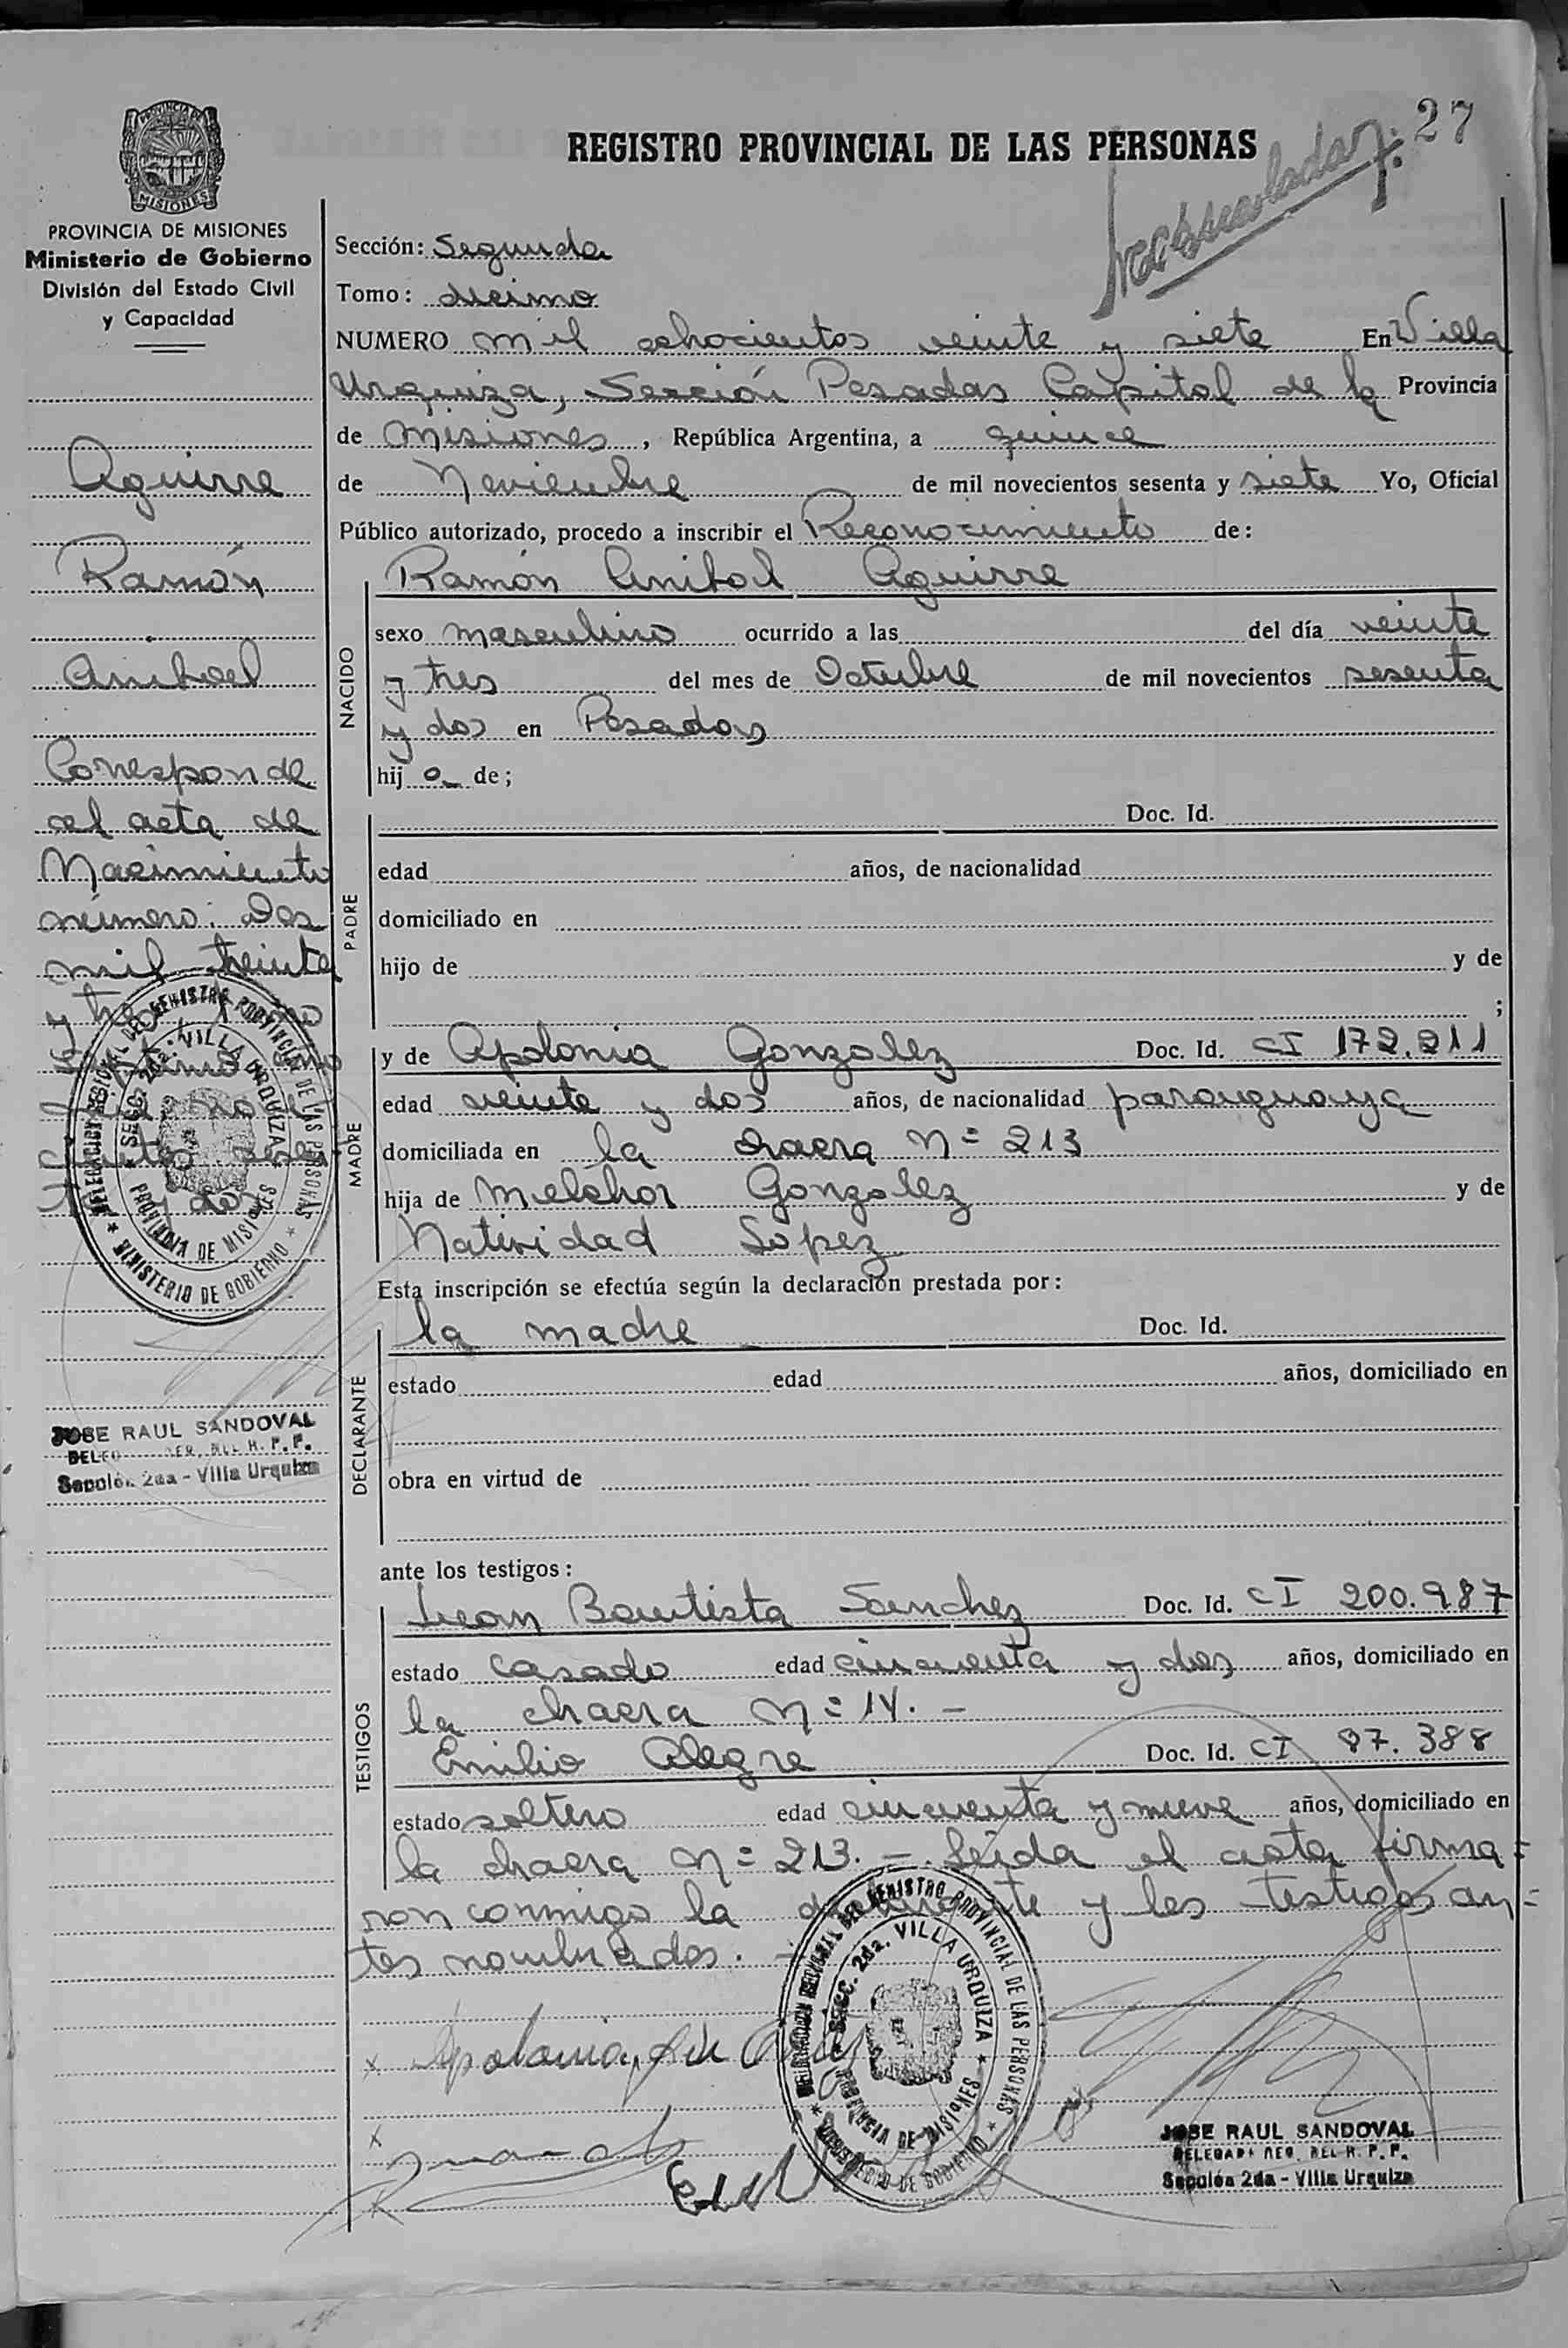 27
REGISTRO PROVINCIAL DE LAS PERSONAS
PROVINCIA DE
MISIONES
PROVINCIA DE MISIONES
Ministerio de Gobierno
División del Estado Civil
y Capacidad
Aguirre
Ramón
Anibal
Corresponde
al acta de
Nacimiento
número: Dos
mil treinta
y tres
y dos
DELEGACION REGIONAL DEL REGISTRO PROVINCIAL DE LAS PERSONAS
★ MINISTERIO DE GOBIERNO ★
SECC. 2da. VILLA URQUIZA
PROVINCIA DE MISIONES
JOSE RAUL SANDOVAL
Sección 2da - Villa Urquiza
Sección: Segunda
Tomo: décimo
NUMERO mil ochocientos veinte y siete En Villa
Urquiza, Sección Posadas Capital de la Provincia
de Misiones, República Argentina, a quince
de Noviembre de mil novecientos sesenta y siete Yo, Oficial
Público autorizado, procedo a inscribir el Reconocimiento de:
NACIDO
Ramón Anibal Aguirre
sexo masculino ocurrido a las del día veinte
y tres del mes de Octubre de mil novecientos sesenta
y dos en Posadas
hij o de;
PADRE
Doc. Id.
edad años, de nacionalidad
domiciliado en
hijo de y de
;
MADRE
y de Apolonia Gonzalez Doc. Id. CI 172.211
edad veinte y dos años, de nacionalidad paraguaya
domiciliada en la chacra Nº 213
hija de Melchor Gonzalez y de
Natividad López
Esta inscripción se efectúa según la declaración prestada por:
DECLARANTE
la madre Doc. Id.
estado edad años, domiciliado en
obra en virtud de
ante los testigos:
TESTIGOS
Juan Bautista Sanchez Doc. Id. CI 200.987
estado casado edad cincuenta y dos años, domiciliado en
la chacra Nº 14. -
Emilio Alegre Doc. Id. CI 97.388
estado soltero edad cincuenta y nueve años, domiciliado en
la chacra Nº 213. - Leída el acta firma=
ron conmigo la declarante y los testigos an=
tes nombrados. -
DELEGACION REGIONAL DEL REGISTRO PROVINCIAL DE LAS PERSONAS
★ MINISTERIO DE GOBIERNO ★
SECC. 2da. VILLA URQUIZA
PROVINCIA DE MISIONES
x Apolonia
x
JOSE RAUL SANDOVAL
DELEGADO REG. DEL R. P. P.
Sección 2da - Villa Urquiza